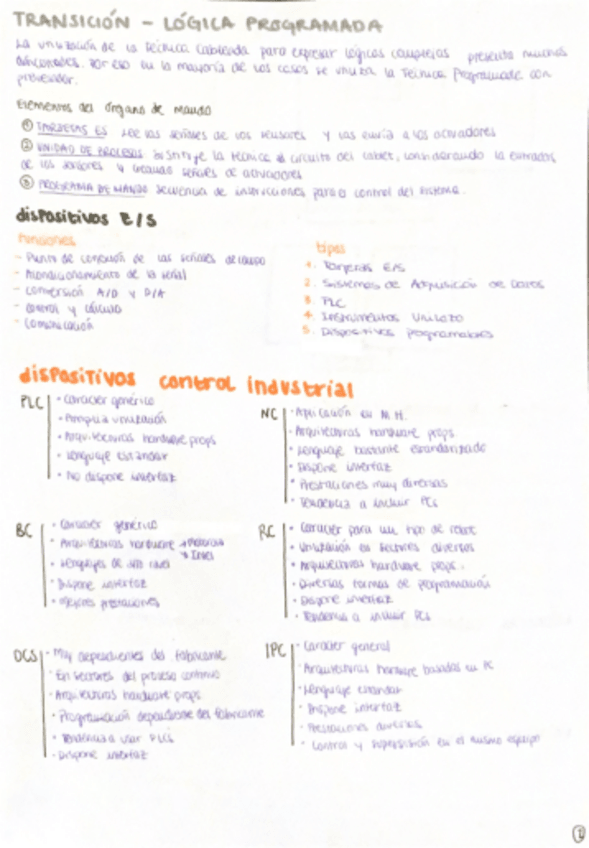 TRANSICIÓN – LÓGICA PROGRAMADA
La utilización de la técnica cableada para expresar lógicas complejas presenta muchas
dificultades. Por eso en la mayoría de los casos se utiliza la Técnica Programada con
Elementos del órgano de Mando
① TARJETAS ES lee las señales de los sensores y las envía a los activadores
② UNIDAD DE PROCESOS Sustituye la técnica circuito del cablet, considerando la entradas
de los sensores y creando señales de activadores
③ PROGRAMA DE MANDO secuencia de instrucciones para control del sistema.
dispositivos E/S
funciones
- Punto de conexión de las señales de campo
- Acondicionamiento de la señal
- Conversión A/D y D/A
- Control y cálculo
- Comunicación
tipos
1. Tarjetas E/S
2. Sistemas de Adquisición de Datos
3. PLC
4. Instrumentos
5. Dispositivos programables
dispositivos control industrial
PLC
· Carácter genérico
· Amplia utilización
· Arquitecturas hardware props
· Lenguaje estándar
· No dispone interfaz
NC
· Aplicación en M.H.
· Arquitecturas hardware props.
· Lenguaje bastante estandarizado
· Dispone interfaz
· Prestaciones muy diversas
· Tendencia a incluir PCs
BC
· Carácter genérico
· Arquitecturas hardware → Motorola
→ Intel
· Lenguajes de alto nivel
· Dispone interfaz
· Mejores prestaciones
RC
· Carácter para un tipo de robot
· Utilización en sectores diversos
· Arquitectura hardware props.
· Diversas formas de programación
· Dispone interfaz
· Tendencia a incluir PCs
DCS
· Muy dependientes del fabricante
· En sectores del proceso continuo
· Arquitecturas hardware props
· Programación dependiente del fabricante
· Tendencia a usar PLCs
· Dispone interfaz
IPC
· Carácter general
· Arquitecturas hardware basadas en PC
· Lenguaje estándar
· Dispone interfaz
· Prestaciones diversas
· Control y supervisión en el mismo equipo
①